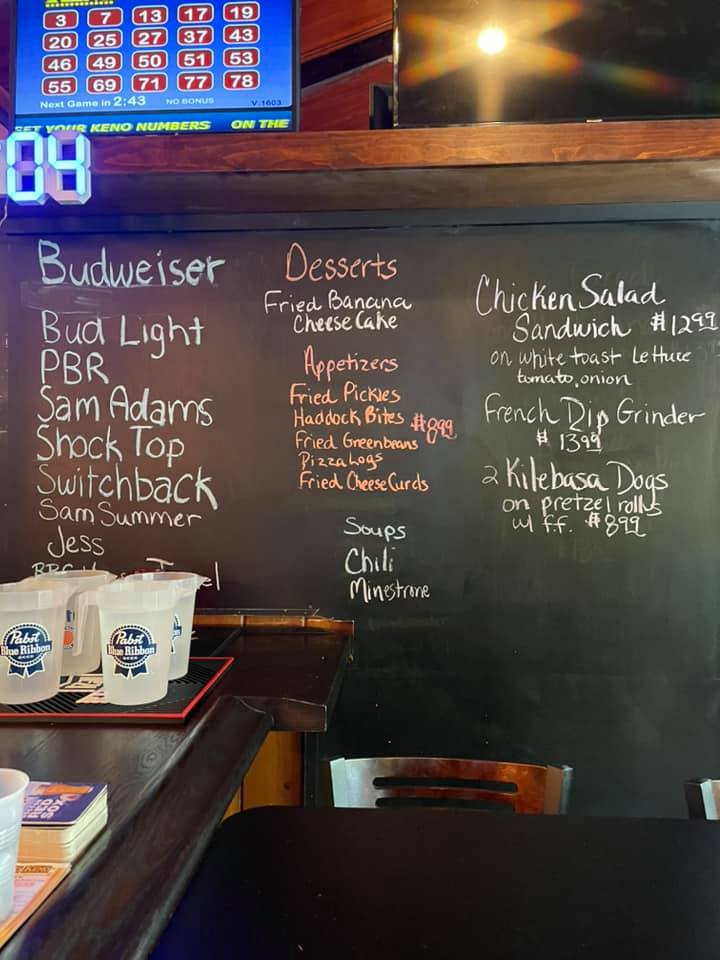 3 7 13 17 19
20 25 27 37 43
46 49 50 51 53
55 69 71 77 78
Next Game in 2:43 NO BONUS V.1603
SET YOUR KENO NUMBERS ON THE
04
Budweiser
Bud Light
PBR
Sam Adams
Shock Top
Switchback
Sam Summer
Jess
Desserts
Fried Banana
Cheese Cake
Appetizers
Fried Pickles
Haddock Bites $8.99
Fried Greenbeans
Pizza Logs
Fried Cheese Curds
Soups
Chili
Minestrone
Chicken Salad
Sandwich $12.99
on white toast Lettuce
tomato, onion
French Dip Grinder
$13.99
2 Kilebasa Dogs
on pretzel rolls
w/ f.f. $8.99
Pabst
Blue Ribbon
BEER
Pabst
Blue Ribbon
BEER
RED
SOX